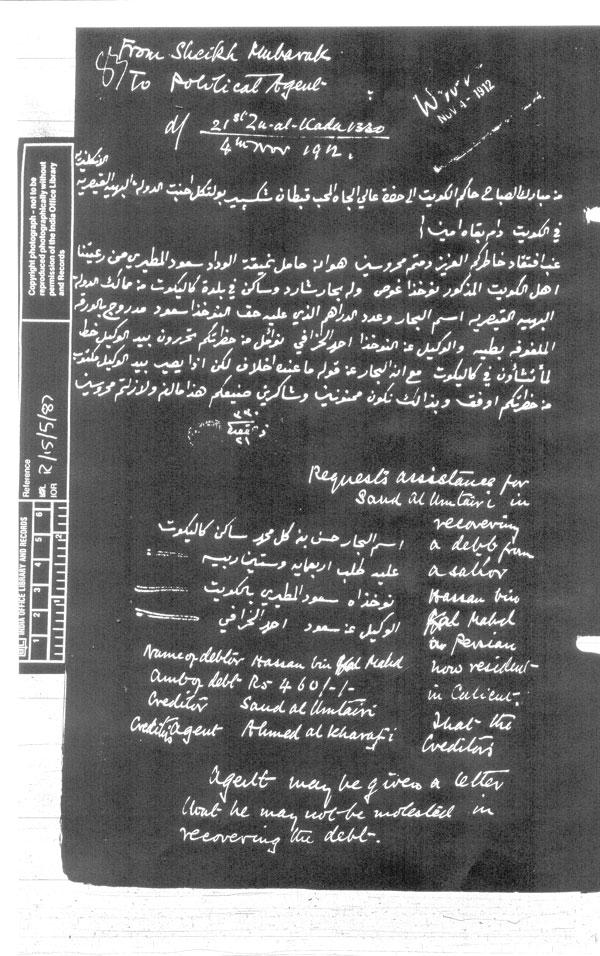 From Sheikh Mubarak
To Political Agent
d/ 21st Zu-al-Kada 1330
4th Nov 1912.
NOV 4 - 1912
من مبارك الصباح حاكم الكويت الى حضرة عالي الجاه المحب قبطان شكسبير بولتكل اجنت الدولة البهية القيصرية
في الكويت دام بقاه امين
غب افتقاد خاطركم العزيز دمتم محروسين هو ان حامل نميقة الوداد سعود المطيري من رعيتنا
اهل الكويت المذكور نوخذا غوص وله بحار شارد وساكن في بلدة كاليكوت من ممالك الدولة
البهية القيصرية اسم البحار وعدد الدراهم الذي عليه حق النوخذا سعود مدروج بالورقة
الملفوفة بطيه والوكيل عن النوخذا احمد الخرافي نؤمل من حضرتكم تحررون بيد الوكيل خط
لمأ تشأون في كاليكوت مع ان البحار عن قوله ما عنده اخلاف لكن اذا يصير بيد الوكيل مكتوب
من حضرتكم اوفق وبذالك نكون ممنونين وشاكرين صنيعكم هذا مالزم ولازلتم محروسين
٣٣٠
ذي قعدة
٢١
Requests assistance for
Saud Al Umtairi in
recovering
a debt from
a sailor
Hassan bin
Gul Mahd
Persian
now resident
in Calicut.
That the
Creditors
Agent may be given a letter
that he may not be molested in
recovering the debt.
اسم البحار حسن بن كل محمد ساكن كاليكوت
عليه طلب اربعماية وستين ربية
نوخذاه سعود المطيري بالكويت
الوكيل عن سعود احمد الخرافي
Name of debtor Hassan bin Gul Mahd
Amt of debt Rs 460/-/-
Creditor Saud al Umtairi
Creditors Agent Ahmed al Kharafi
Copyright photograph - not to be
reproduced photographically without
permission of the India Office Library
and Records
Reference
IOR R/15/5/87
INDIA OFFICE LIBRARY AND RECORDS
1 2 3 4 5 6
1 2